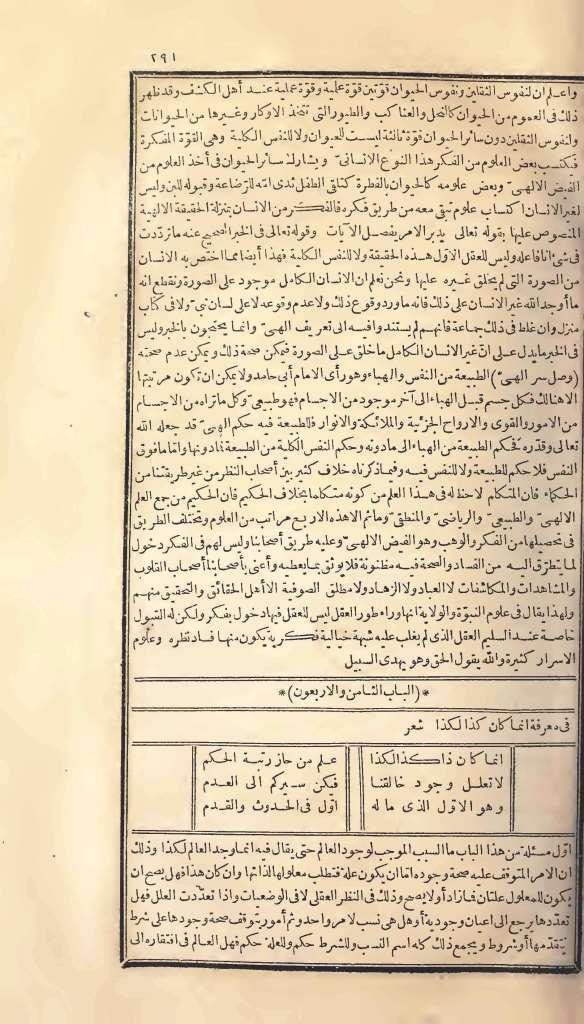 ٢٩١
واعلم ان لنفوس الثقلين ونفوس الحيوان قوّتين قوّة علمية وقوّة عملية عند أهل الكشف وقد ظهر
ذلك فى العموم من الحيوان كالنحل والعناكب والطيور التى تتخذ الاوكار وغيرها من الحيوانات
ولنفوس الثقلين دون سائر الحيوان قوّة ثالثة ليست للحيوان ولا للنفس الكلية وهى القوّة المفكرة
فيكتسب بعض العلوم من الفكر هذا النوع الانسانى ويشارك سائر الحيوان فى أخذ العلوم من
الفيض الالهىّ وبعض علومه كالحيوان بالفطرة كتلقى الطفل ثدى امّه للرضاعة وقبوله للبن وليس
لغير الانسان اكتساب علوم تبقى معه من طريق فكره فالفكر من الانسان بمنزلة الحقيقة الالهية
المنصوص عليها بقوله تعالى يدبر الامر يفصل الآيات وقوله تعالى فى الخبر الصحيح عنه ما تردّدت
فى شىء انا فاعله وليس للعقل الاوّل هذه الحقيقة ولا للنفس الكلية فهذا أيضا مما اختص به الانسان
من الصورة التى لم يخلق غيره عليها ونحن نعلم ان الانسان الكامل موجود على الصورة ونقطع انه
ما أوجد الله غير الانسان على ذلك فانه ما ورد وقوع ذلك ولا عدم وقوعه لا على لسان نبىّ ولا فى كتاب
منزل وان غلط فى ذلك جماعة فانهم لم يستندوا فيه الى تعريف الهىّ وانما يحتجون بالخبر وليس
فى الخبر ما يدل على انّ غير الانسان الكامل ما خلق على الصورة فيمكن صحة ذلك ويمكن عدم صحته
(وصل سر الهىّ) الطبيعة من النفس والهباء وهو رأى الامام أبى حامد ولا يمكن ان تكون مرتبتها
الا هنالك فكل جسم قبل الهباء الى آخر موجود من الاجسام فهو طبيعىّ وكل ما تراه من الاجسام
من الامور والقوى والارواح الجزئية والملائكة والانوار فللطبيعة فيه حكم الهىّ قد جعله الله
تعالى وقدّره فحكم الطبيعة من الهباء الى ما دونه وحكم النفس الكلية من الطبيعة فما دونها واما ما فوق
النفس فلا حكم للطبيعة ولا للنفس فيه وفيما ذكرناه خلاف كثير بين أصحاب النظر من غير طريقتنا من
الحكماء فان المتكلم لا حظ له فى هذا العلم من كونه متكلما بخلاف الحكيم فان الحكيم من جمع العلم
الالهىّ والطبيعىّ والرياضىّ والمنطقىّ وما ثم الا هذه الاربع مراتب من العلوم وتختلف الطريق
فى تحصيلها من الفكر والوهب وهو الفيض الالهىّ وعليه طريق أصحابنا وليس لهم فى الفكر دخول
لما يتطرّق اليه من الفساد والصحة فيه مظنونة فلا يوثق بما يعطيه وأعنى بأصحابنا أصحاب القلوب
والمشاهدات والمكاشفات لا العباد ولا الزهاد ولا مطلق الصوفية الا أهل الحقائق والتحقيق منهم
ولهذا يقال فى علوم النبوّة والولاية انها وراء طور العقل ليس للعقل فيها دخول بفكر ولكن له القبول
خاصة عند السليم العقل الذى لم يغلب عليه شبهة خيالية فكرية يكون منها فساد نظره وعلوم
الاسرار كثيرة والله يقول الحق وهو يهدى السبيل
*(الباب الثامن والاربعون)*
فى معرفة انما كان كذا لكذا شعر
انما كان ذا كذا لكذا علم من حاز رتبة الحكم
لا تعلل وجود خالقنا فيكن سيركم الى العدم
وهو الاول الذى ما له اوّل فى الحدوث والقدم
اوّل مسئلة من هذا الباب ما السبب الموجب لوجود العالم حتى يقال فيه انما وجد العالم لكذا وذلك
ان الامر المتوقف عليه صحة وجوده اما ان يكون علة فتطلب معلولها لذاتها وان كان هذا فهل يصح ان
يكون للمعلول علتان فما زاد أو لا يصح وذلك فى النظر العقلى لا فى الوضعيات واذا تعدّدت العلل فهل
تعدّدها يرجع الى اعيان وجودية أو هل هى نسب لامر واحد وثم أمور يتوقف صحة وجودها على شرط
يتقدّمها أو شروط ويجمع ذلك كله اسم السبب وللشرط حكم وللعلة حكم فهل العالم فى افتقاره الى